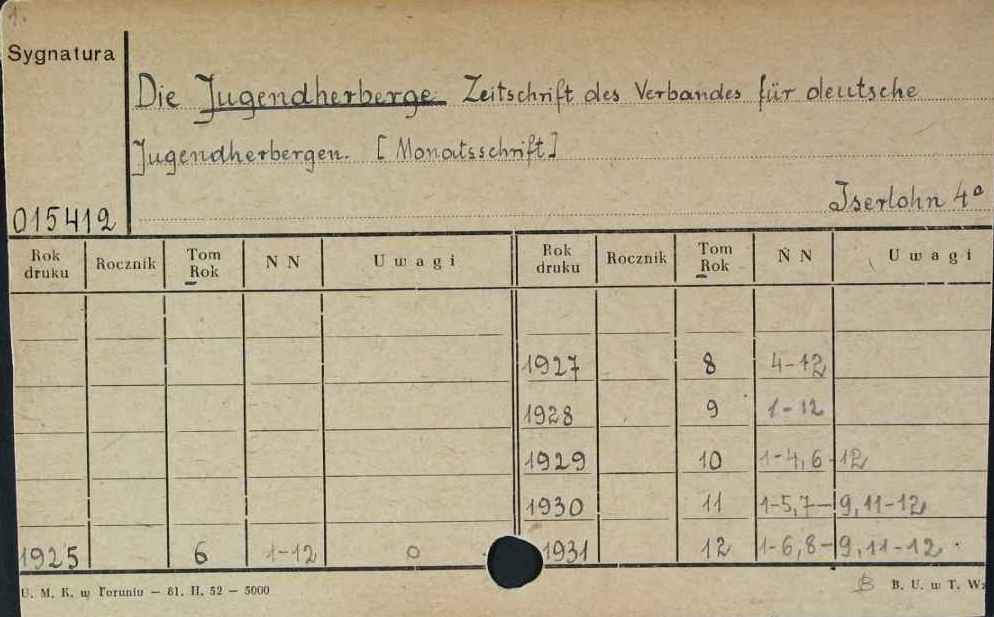 1.
Sygnatura
Die Jugendherberge Zeitschrift des Verbandes für deutsche
Jugendherbergen. [Monatsschrift]
Iserlohn 4°
015412
Rok druku Rocznik Tom Rok N N Uwagi Rok druku Rocznik Tom Rok N N Uwagi
1927 8 4-12
1928 9 1-12
1929 10 1-4, 6-12
1930 11 1-5, 7-9, 11-12
1925 6 1-12 0 1931 12 1-6, 8-9, 11-12.
U. M. K. w Toruniu — 81. II. 52 — 5000
B B. U. w T. Wz